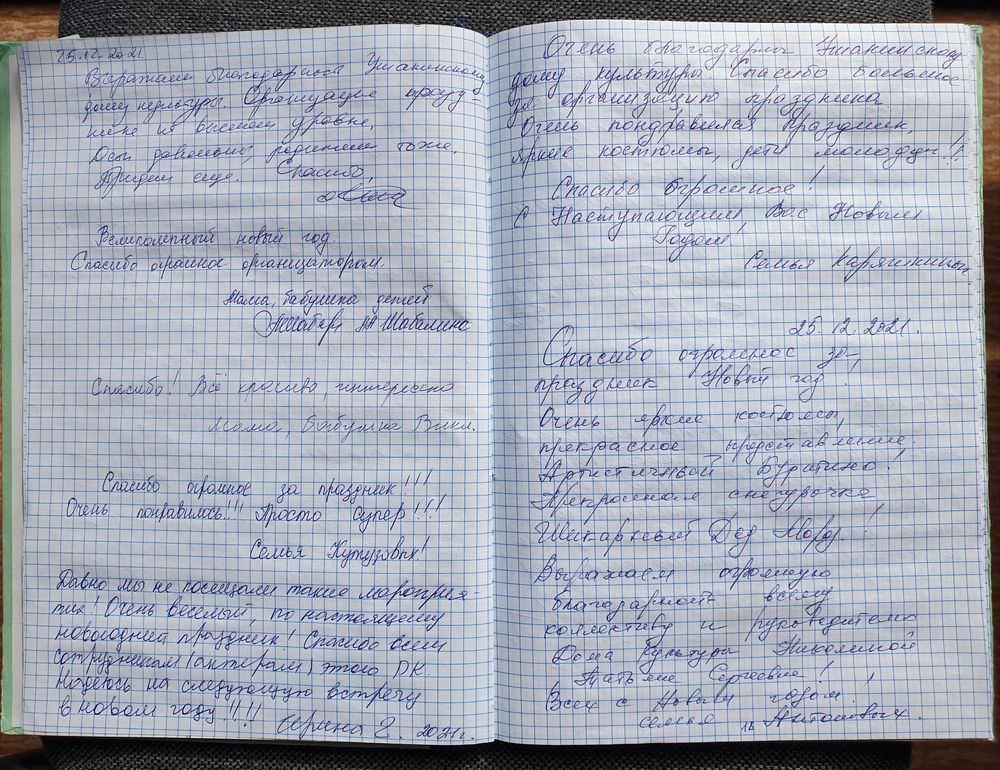 25.12.2021
Выражаем благодарность Ушакинскому
дому культуры. Организация празд-
ника на высшем уровне,
довольны, родители тоже.
Придем еще. Спасибо,
Великолепный новый год.
Спасибо огромное организаторам.
Мама, бабушка детей
Шабалина
Спасибо! Всё красиво, интересно
Мама, Бабушка Вики.
Спасибо огромное за праздник!!!
Очень понравилось!!! Просто супер!!!
Семья Кутузовых!
Давно мы не посещали такие мароприя-
тия! Очень веселый, по настоящему
новогодний праздник! Спасибо всем
сотрудникам (актерам) этого ДК.
Надеюсь на следующую встречу
в новом году!!!!
Ирина Г. 2021г.
Очень благодарны Ушакинскому
дому культуры. Спасибо большое
за организацию праздника
Очень пондравился праздник,
яркие костюмы, дети молодцы!!!
Спасибо Огромное!
С Наступающим, Вас Новым
Годом!
Семья Карякиных
25.12.2021.
Спасибо огромное за
праздник Новый год!
Очень яркие костюмы,
прекрасное представление.
Артистичный Буратино!
Прекрасная снегурочка
Шикарный Дед Мороз!
Выражаем огромную
благодарность всему
коллективу и руководителю
Дома Культуры Николиной
Татьяне Сергеевне!
Всех с Новым годом!
семья Антоновых.